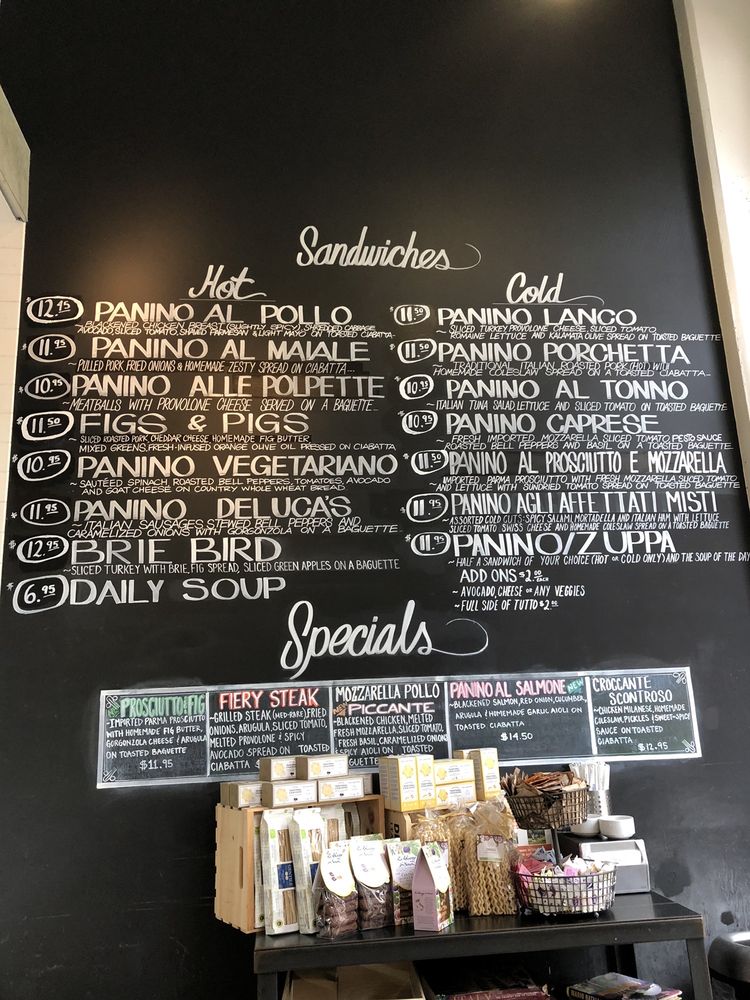 Sandwiches
Hot
$12.95 PANINO AL POLLO
BLACKENED CHICKEN BREAST (SLIGHTLY SPICY), SHREDDED CABBAGE
AVOCADO, SLICED TOMATO, SHAVED PARMESAN & LIGHT MAYO ON TOASTED CIABATTA~
$11.95 PANINO AL MAIALE
~PULLED PORK, FRIED ONIONS & HOMEMADE ZESTY SPREAD ON CIABATTA...
$10.95 PANINO ALLE POLPETTE
~MEATBALLS WITH PROVOLONE CHEESE SERVED ON A BAGUETTE...
$11.50 FIGS & PIGS
~SLICED ROASTED PORK, CHEDDAR CHEESE, HOMEMADE FIG BUTTER
MIXED GREENS, FRESH-INFUSED ORANGE OLIVE OIL PRESSED ON CIABATTA
$10.95 PANINO VEGETARIANO
~SAUTÉED SPINACH, ROASTED BELL PEPPERS, TOMATOES, AVOCADO
AND GOAT CHEESE ON COUNTRY WHOLE WHEAT BREAD
$11.95 PANINO DELUCAS
~ITALIAN SAUSAGES, STEWED BELL PEPPERS AND
CARAMELIZED ONIONS WITH GORGONZOLA ON A BAGUETTE...
$12.95 BRIE BIRD
~SLICED TURKEY WITH BRIE, FIG SPREAD, SLICED GREEN APPLES ON A BAGUETTE
$6.95 DAILY SOUP
Cold
$11.50 PANINO LANCO
~SLICED TURKEY, PROVOLONE CHEESE, SLICED TOMATO
ROMAINE LETTUCE AND KALAMATA OLIVE SPREAD ON TOASTED BAGUETTE
$11.50 PANINO PORCHETTA
~TRADITIONAL ITALIAN ROASTED PORK (HOT) WITH
HOMEMADE COLESLAW SPREAD ON A TOASTED CIABATTA...
$10.95 PANINO AL TONNO
~ITALIAN TUNA SALAD, LETTUCE AND SLICED TOMATO ON TOASTED BAGUETTE
$10.95 PANINO CAPRESE
~FRESH IMPORTED MOZZARELLA SLICED TOMATO, PESTO SAUCE
ROASTED BELL PEPPERS AND BASIL ON A TOASTED BAGUETTE
$11.50 PANINO AL PROSCIUTTO E MOZZARELLA
IMPORTED PARMA PROSCIUTTO WITH FRESH MOZZARELLA SLICED TOMATO
AND LETTUCE WITH SUNDRIED TOMATO SPREAD ON TOASTED BAGUETTE
$11.95 PANINO AGLI AFFETTATI MISTI
~ASSORTED COLD CUTS: SPICY SALAMI, MORTADELLA AND ITALIAN HAM WITH LETTUCE
SLICED TOMATO SWISS CHEESE AND HOMEMADE COLESLAW SPREAD ON A TOASTED BAGUETTE
$11.95 PANINO/ZUPPA
~HALF A SANDWICH OF YOUR CHOICE (HOT OR COLD ONLY) AND THE SOUP OF THE DAY
ADD ONS $2.00 EACH
~AVOCADO, CHEESE OR ANY VEGGIES
~FULL SIDE OF TUTTO $2.00
Specials
PROSCIUTTO & FIG
IMPORTED PARMA PROSCIUTTO
WITH HOMEMADE FIG BUTTER,
GORGONZOLA CHEESE & ARUGULA
ON TOASTED BAGUETTE
$11.95
FIERY STEAK
~GRILLED STEAK (MED-RARE), FRIED
ONIONS, ARUGULA, SLICED TOMATO,
MELTED PROVOLONE & SPICY
AVOCADO SPREAD ON TOASTED
CIABATTA
MOZZARELLA POLLO
NEW PICCANTE
~BLACKENED CHICKEN, MELTED
FRESH MOZZARELLA, SLICED TOMATO,
FRESH BASIL, CARAMELIZED ONIONS
& SPICY AIOLI ON TOASTED
PANINO AL SALMONE NEW
~BLACKENED SALMON, RED ONION, CUCUMBER,
ARUGULA & HOMEMADE GARLIC AIOLI ON
TOASTED CIABATTA
$14.50
CROCCANTE
SCONTROSO
~CHICKEN MILANESE, HOMEMADE
COLESLAW, PICKLES & SWEET-SPICY
SAUCE ON TOASTED
CIABATTA
$12.95